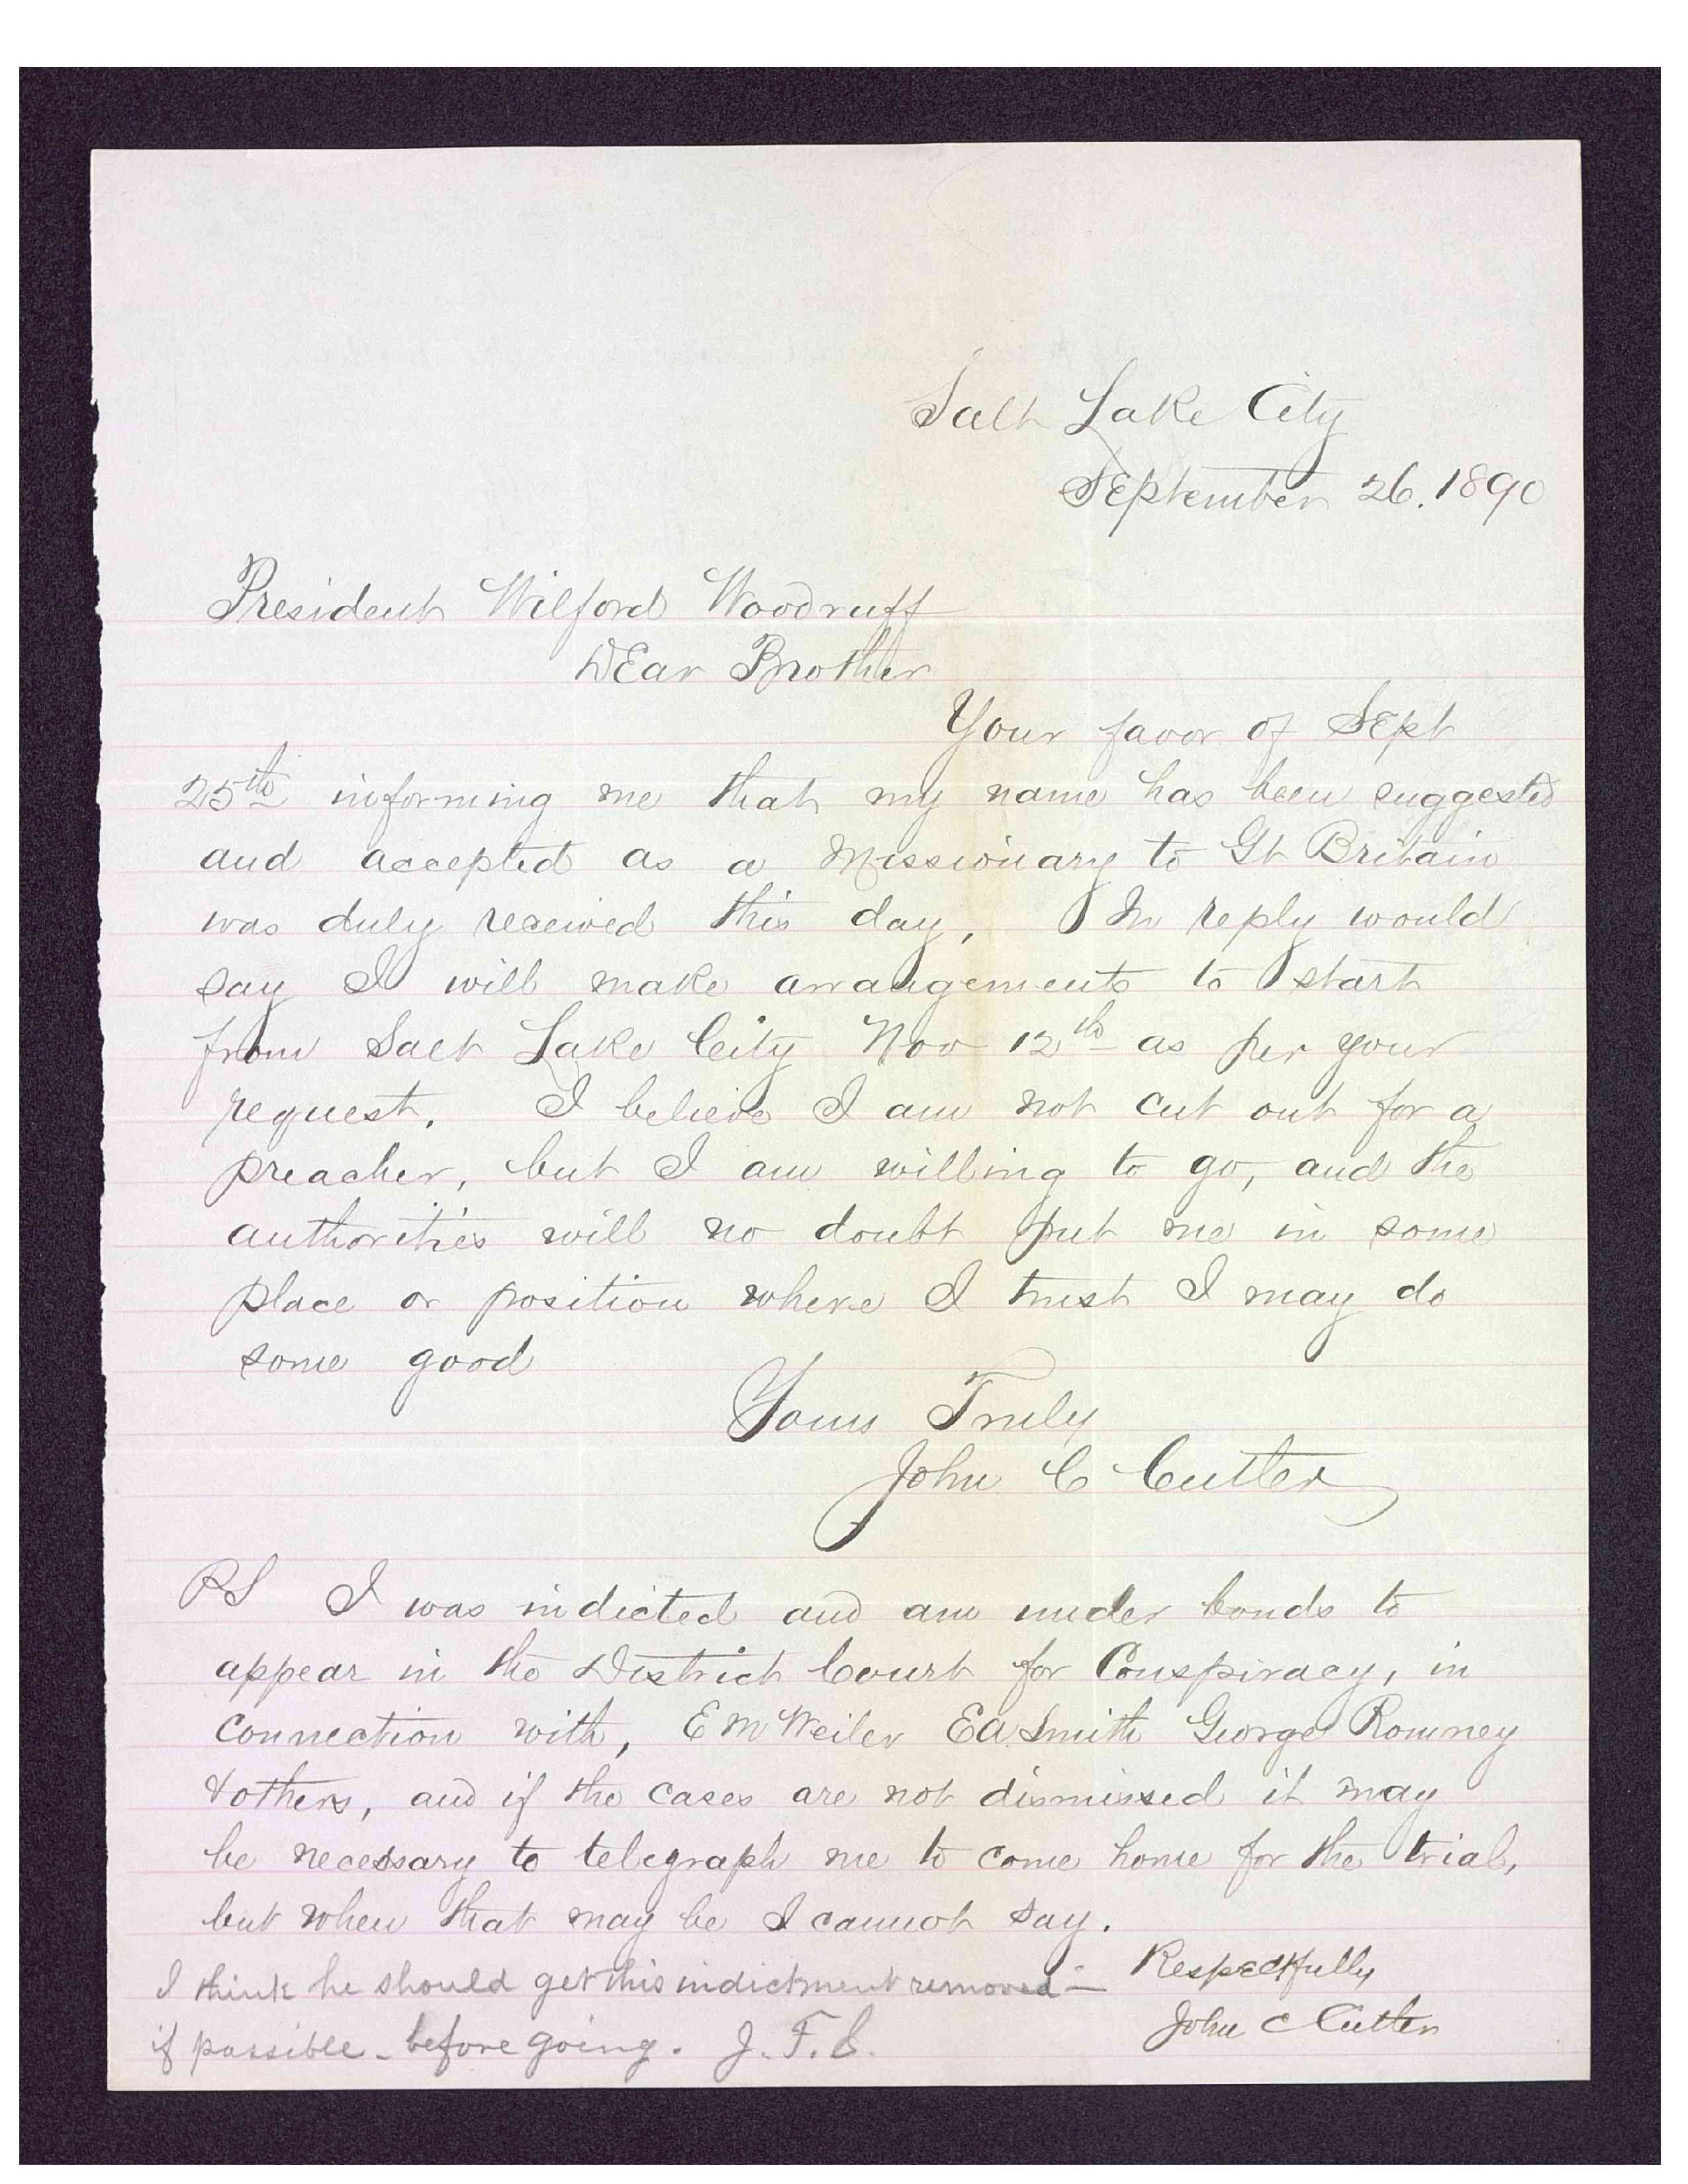 Salt Lake City
September 26. 1890
President Wilford Woodruff
Dear Brother
Your favor of Sept
25th informing me that my name has been suggested
and accepted as a Missionary to Gt Britain
was duly received this day, In reply would
say I will make arrangements to start
from Salt Lake City Nov 12th as per your
request. I believe I am not cut out for a
preacher, but I am willing to go, and the
authorities will no doubt put me in some
place or position where I trust I may do
some good
Yours Truly
John C Cutler
PS I was indicted and am under bonds to
appear in the District Court for Conspiracy, in
connection with, E M Weiler E A Smith George Romney
& others, and if the cases are not dismissed it may
be necessary to telegraph me to come home for the trial,
but when that may be I cannot say.
Respectfully
John C Cutler
I think he should get this indictment removed -
if possible - before going. J. F. S.